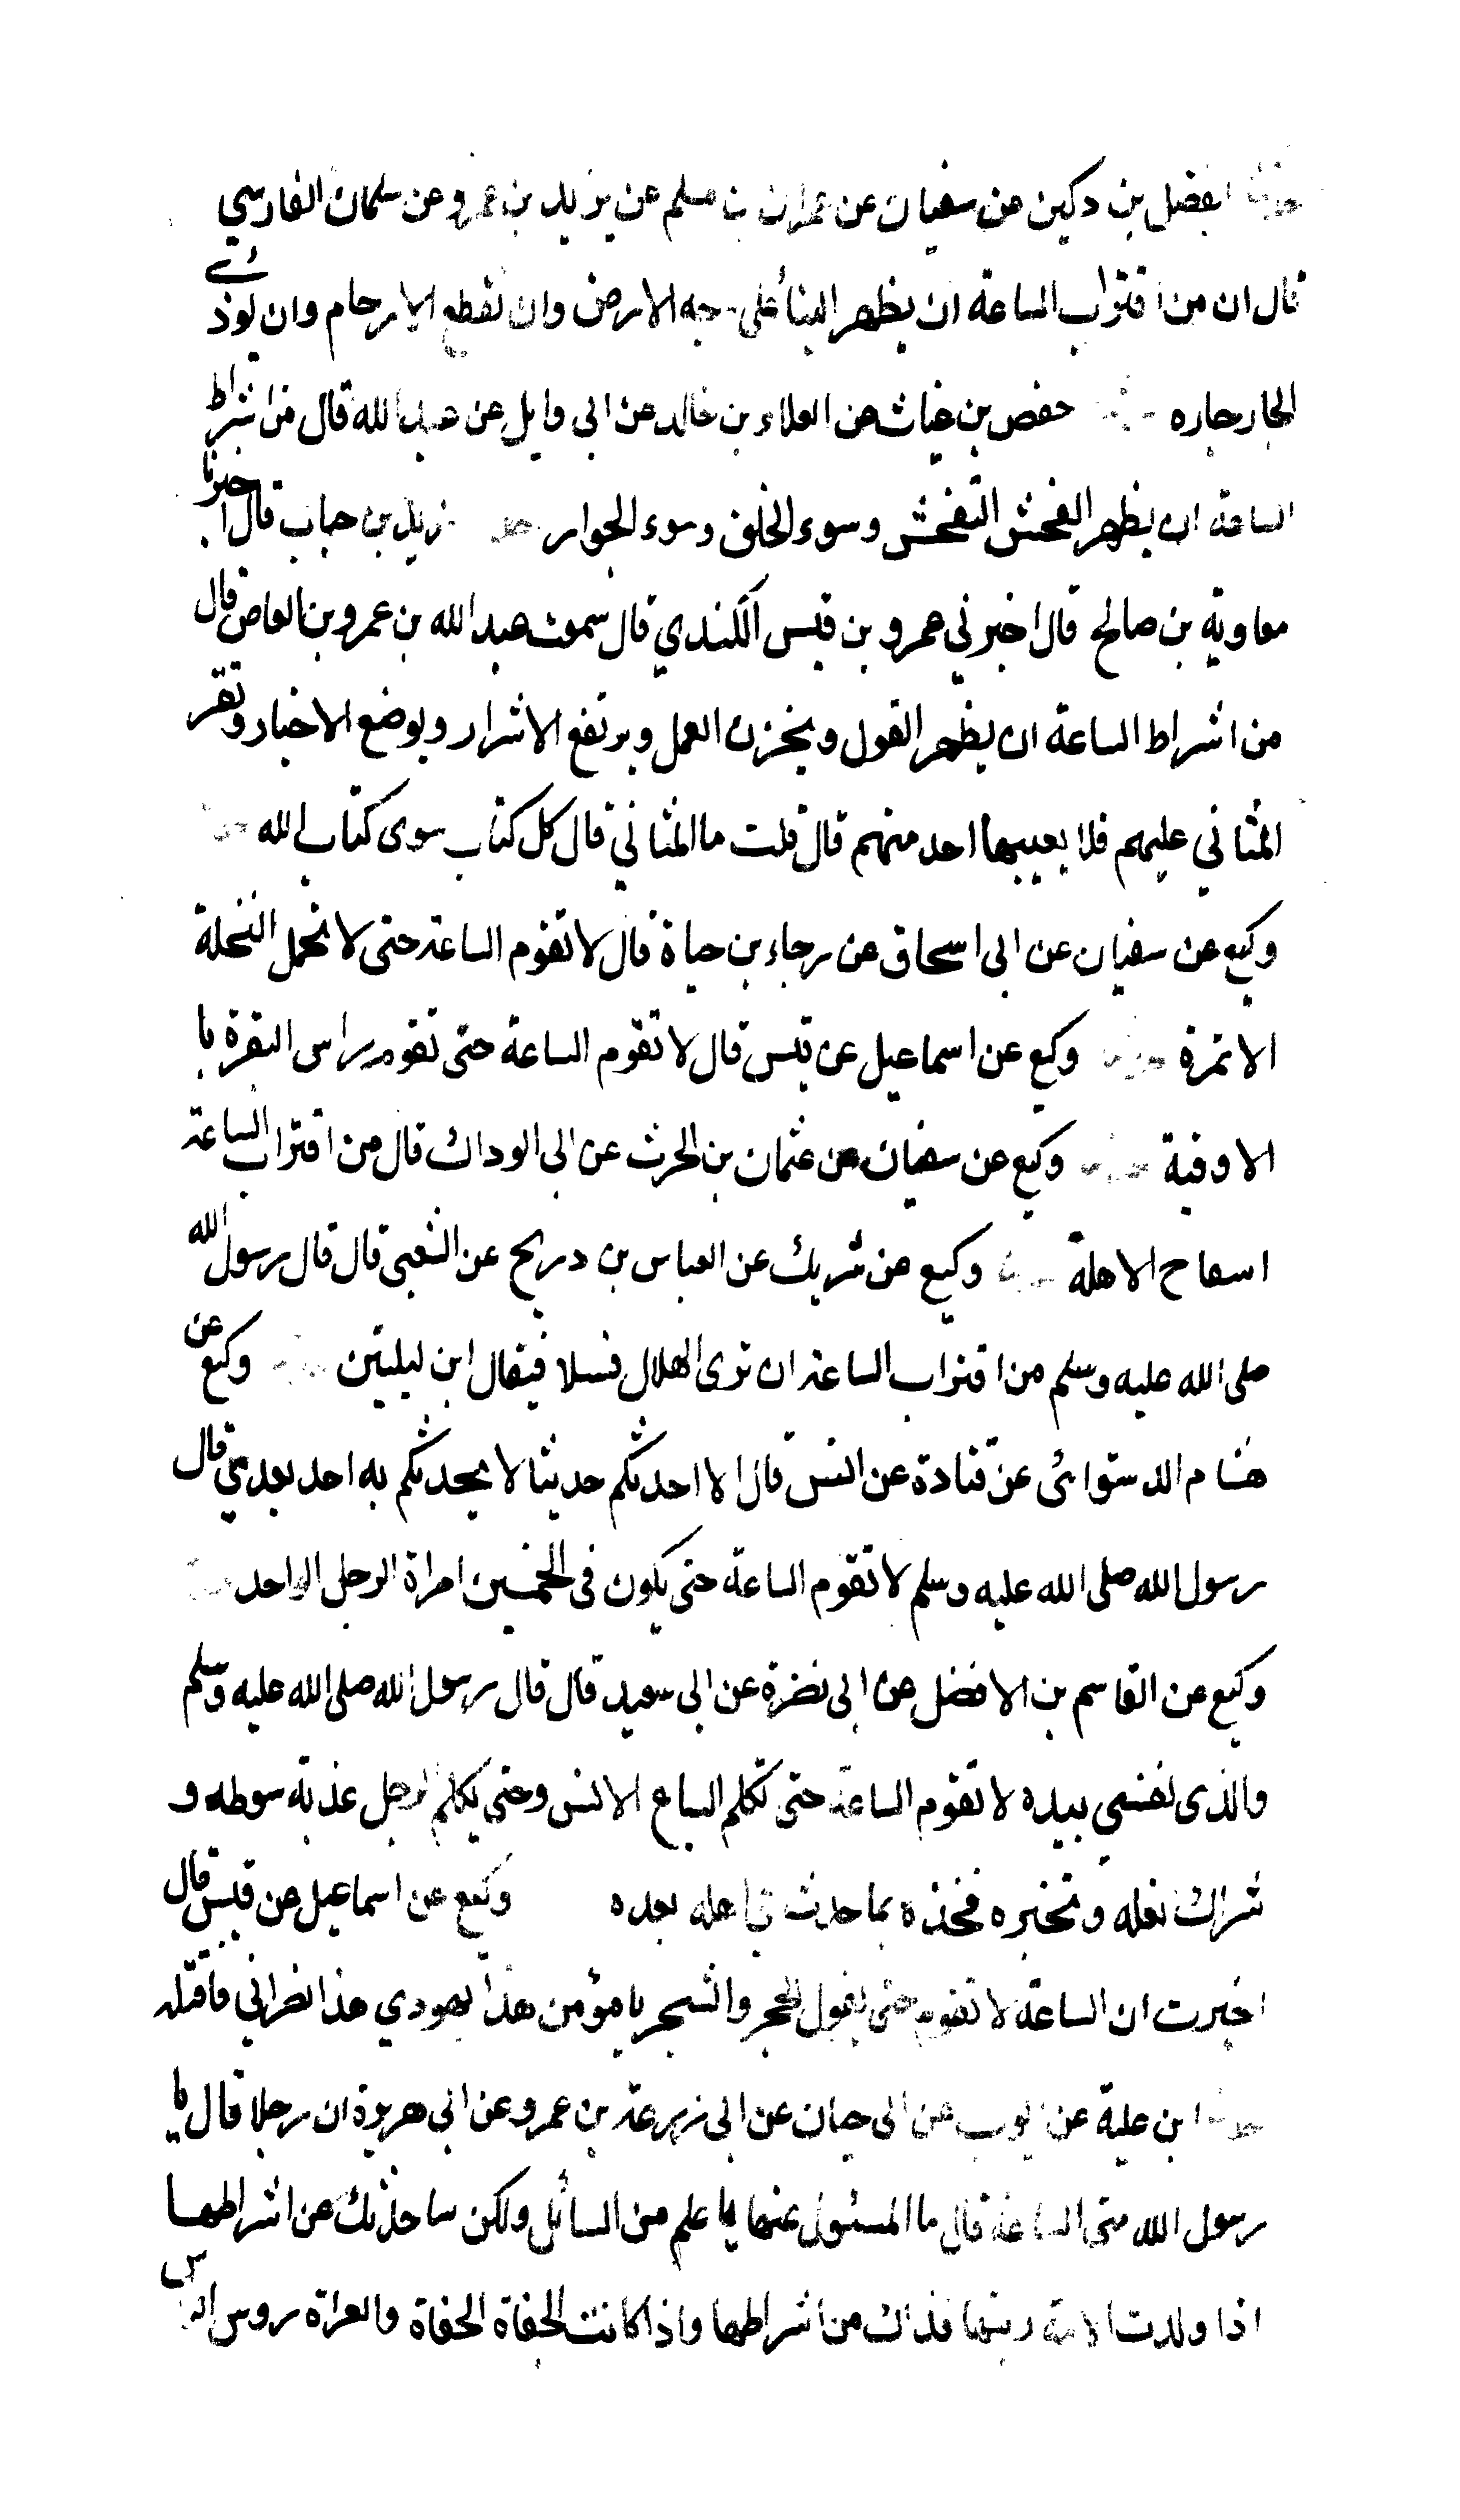 حدثنا الفضل بن دكين عن سفيان عن عمران بن مسلم عن يزيد بن عمرو عن سلمان الفارسي
قال ان من اقتراب الساعة ان يظهر البنا على وجه الارض وان تقطع الارحام وان يوذي
الجار جاره حفص بن غياث عن العلاء بن خالد عن ابي وايل عن عبد الله قال من اشراط
الساعة ان يظهر الفحش التفحش وسوء الخلق وسوء الجوار زيد بن حباب قال اخبرنا
معاوية بن صالح قال اخبرني عمرو بن قيس الكندي قال سمعت عبد الله بن عمرو بن العاص قال
من اشراط الساعة ان يظهر القول ويخزن العمل ويرتفع الاشرار ويوضع الاخيار وتقر
المثاني عليهم فلا يعيبها احد منهم قال قلت ما المثاني قال كل كتاب سوى كتاب الله
وكيع عن سفيان عن ابي اسحاق عن رجاء بن حياة قال لا تقوم الساعة حتى لا تحمل النخلة
الا تمرة وكيع عن اسماعيل عن قيس قال لا تقوم الساعة حتى تقوم راس البقرة با
لاوقية وكيع عن سفيان عن عثمان بن الحرث عن ابي الوداك قال من اقتراب الساعة
الاهلة وكيع عن شريك عن العباس بن دريح عن الشعبي قال قال رسول الله
صلى الله عليه وسلم من اقتراب الساعة ان ترى الهلال فيقال ابن ليلتين وكيع عن
هشام الدستوائى عن قتادة عن انس قال الا احدثكم حديثا لا يحدثكم به احد بعدي قال
رسول الله صلى الله عليه وسلم لا تقوم الساعة حتى يكون في الخمسين امراة الرجل الواحد
وكيع عن القاسم بن الافضل عن ابي نضرة عن ابي سعيد قال قال رسول الله صلى الله عليه وسلم
والذى نفسي بيده لا تقوم الساعة حتى تكلم السباع الانس وحتى يكلم الرجل عذبة سوطه و
شراك نعله وتخبره فخذه بما حدث في اهله بعده وكيع عن اسماعيل عن قيس قال
اخبرت ان الساعة لا تقوم حتى يقول الحجر والشجر يا مؤمن هذا يهودي هذا نصراني فاقتله
ابن علية عن ايوب عن ابي حيان عن ابي زرعة بن عمرو عن ابي هريرة ان رجلا قال يا
رسول الله متى الساعة قال ما المسئول عنها باعلم من السائل ولكن ساحدثك عن اشراطها
اذا ولدت الامة ربتها فذاك من اشراطها واذا كانت الحفاة الحفاة والعراة روس الناس